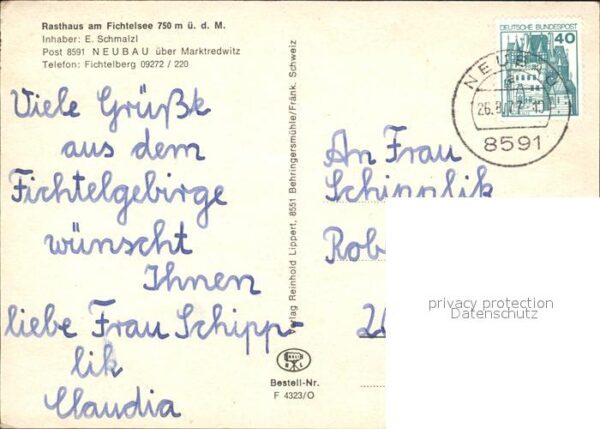 Rasthaus am Fichtelsee 750 m ü. d. M.
Inhaber: E. Schmalzl
Post 8591 NEUBAU über Marktredwitz
Telefon: Fichtelberg 09272 / 220
Viele Grüße
aus dem
Fichtelgebirge
wünscht
Ihnen
liebe Frau Schipp-
lik
Claudia
Verlag Reinhold Lippert, 8551 Behringersmühle/Fränk. Schweiz
Bestell-Nr.
F 4323/O
DEUTSCHE BUNDESPOST
40
NEUBAU
26.8.77
8591
An Frau
Schipplik
Rob
privacy protection
Datenschutz